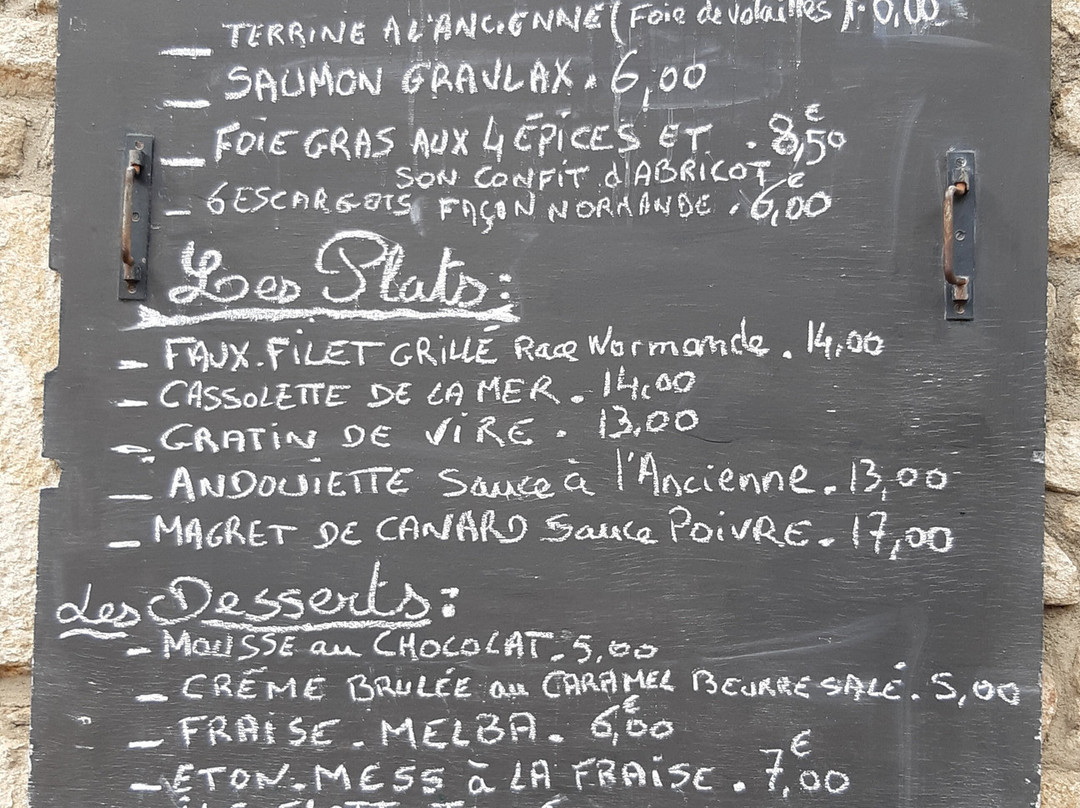 TERRINE A L'ANCIENNE (Foie de volailles
SAUMON GRAVLAX. 6,00
FOIE GRAS AUX 4 ÉPICES ET . 8,50 €
SON CONFIT d'ABRICOT
6 ESCARGOTS FAÇON NORMANDE . 6,00 €
Les Plats:
FAUX.FILET GRILLÉ Race Normande . 14,00
CASSOLETTE DE LA MER . 14,00
GRATIN DE VIRE . 13,00
ANDOUIETTE Sauce à l'Ancienne . 13,00
MAGRET DE CANARD Sauce POIVRE . 17,00
Les Desserts:
MOUSSE au CHOCOLAT . 5,00
CRÉME BRULÉE au CARAMEL BEURRE SALÉ . 5,00
FRAISE . MELBA . 6,00 €
ETON-MESS à LA FRAISE . 7,00 €